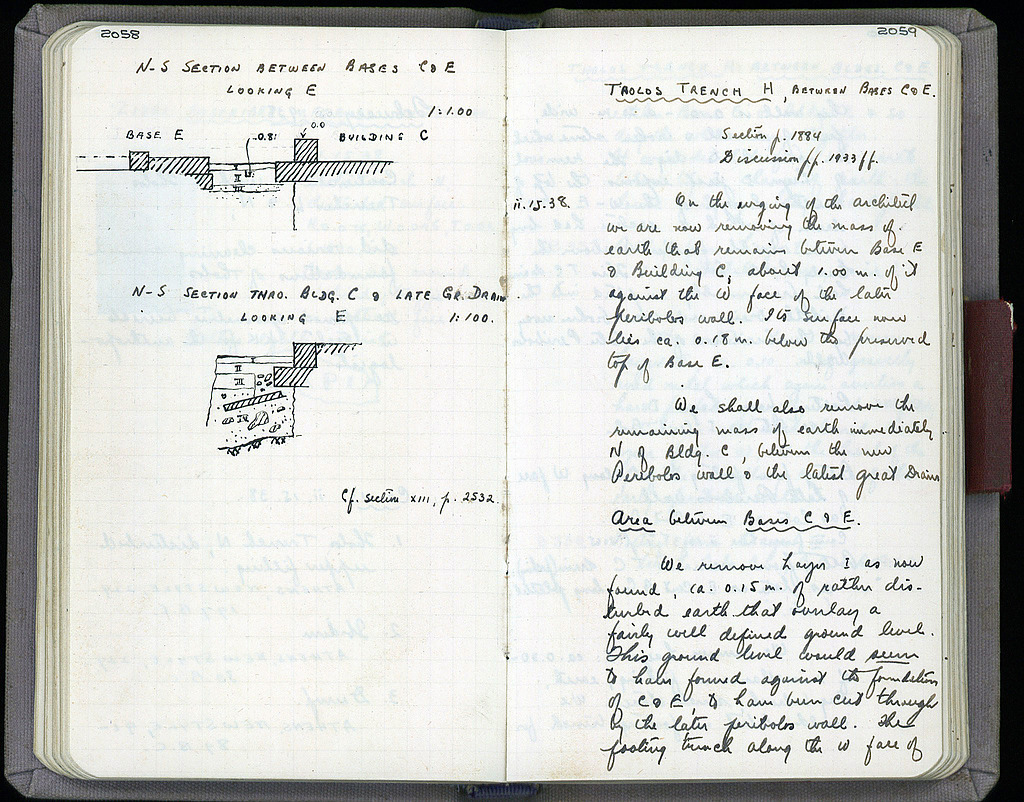 2058
N-S SECTION BETWEEN BASES C & E
LOOKING E
1:1.00
BASE E
-0.81
0.0
BUILDING C
I
II
III
N-S SECTION THRO. BLDG. C & LATE GR. DRAIN
LOOKING E
1:100.
I
II
III
IV
Cf. section XIII, p. 2532.
2059
THOLOS TRENCH H, BETWEEN BASES C & E.
Section p. 1884
Discussion pp. 1933 ff.
ii.15.38. On the urging of the architect
we are now removing the mass of
earth that remains between Base E
& Building C, about 1.00 m. of it
against the W face of the later
peribolos wall. Its surface now
lies ca. 0.18 m. below the preserved
top of Base E.
We shall also remove the
remaining mass of earth immediately
N of Bldg. C, between the new
Peribolos wall & the latest great Drain
Area between Bases C & E.
We remove Layer I as now
found, ca. 0.15 m. of rather dis-
turbed earth that overlay a
fairly well defined ground level.
This ground level would seem
to have formed against the foundations
of C & E, to have been cut through
by the later peribolos wall. The
footing trench along the W face of